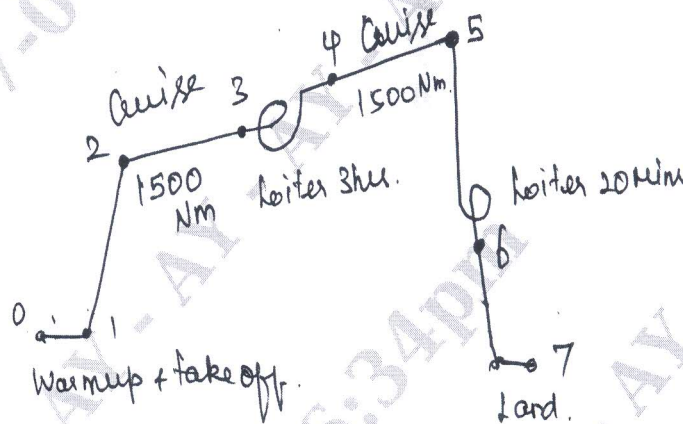 4 Cruise 5
Cruise 3
1500 Nm.
2
1500
Nm
Loiter 3hrs.
Loiter 20 Mins
6
0
1
7
Warmup + takeoff.
Land.
6:34pm